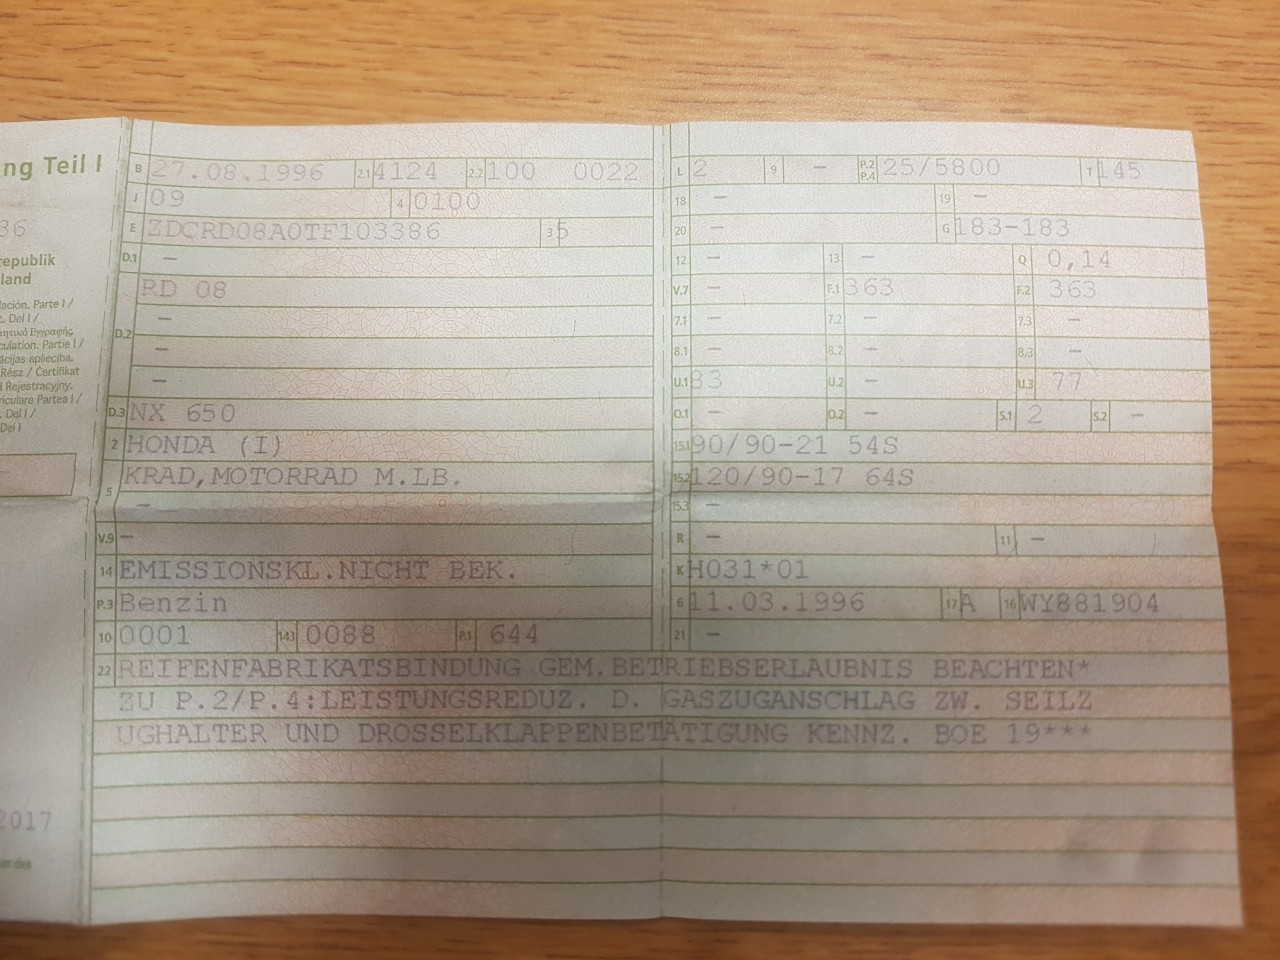 ng Teil I
36
republik
land
lación. Parte I /
. Del I /
culation. Partie I /
ācijas apliecība.
Rész / Certifikat
Rejestracyjny.
riculare Partea I /
. Del I /
Del I
2017
B 27.08.1996 2.1 4124 2.2 100 0022
J 09 4 0100
E ZDCRD08A0TF103386 3 5
D.1 –
RD 08
–
D.2
–
–
D.3 NX 650
2 HONDA (I)
KRAD,MOTORRAD M.LB.
5
–
V.9 –
14 EMISSIONSKL.NICHT BEK.
P.3 Benzin
10 0001 14.1 0088 P.1 644
L 2 9 – P.2 P.4 25/5800 T 145
18 – 19 –
20 – G 183-183
12 – 13 – Q 0,14
V.7 – F.1 363 F.2 363
7.1 – 7.2 – 7.3 –
8.1 – 8.2 – 8.3 –
U.1 83 U.2 – U.3 77
O.1 – O.2 – S.1 2 S.2 –
15.1 90/90-21 54S
15.2 120/90-17 64S
15.3 –
R – 11 –
K H031*01
6 11.03.1996 17 A 16 WY881904
21 –
22 REIFENFABRIKATSBINDUNG GEM.BETRIEBSERLAUBNIS BEACHTEN*
ZU P.2/P.4:LEISTUNGSREDUZ. D. GASZUGANSCHLAG ZW. SEILZ
UGHALTER UND DROSSELKLAPPENBETÄTIGUNG KENNZ. BOE 19***